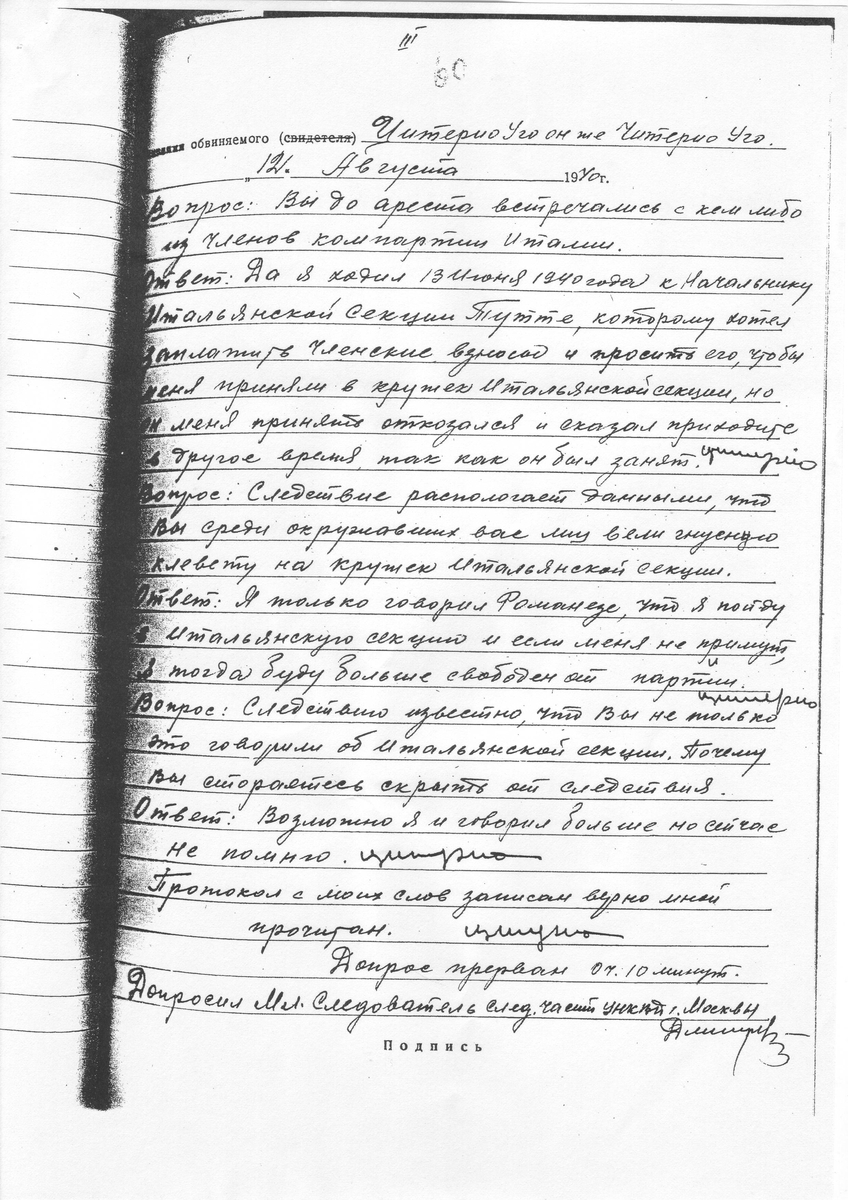 III
60
обвиняемого (свидетеля) Цитерио Уго он же Читерио Уго.
„12". Августа 1940г.
Вопрос: Вы до ареста встречались с кем либо
из членов компартии Италии.
Ответ: Да я ходил 13 Июня 1940 года к Начальнику
Итальянской секции Тутте, которому хотел
заплатить членские взносы и просить его, чтобы
меня приняли в кружек Итальянской секции, но
он меня принять отказался и сказал приходите
в другое время, так как он был занят. Цитерио
Вопрос: Следствие распологает данными, что
Вы среди окружавших вас лиц вели гнусную
клевету на кружек Итальянской секции.
Ответ: Я только говорил Романезе, что я пойду
в Итальянскую секцию и если меня не примут,
я тогда буду больше свободен от партии.
Цитерио
Вопрос: Следствию известно, что Вы не только
это говорили об Итальянской секции. Почему
Вы стораетесь скрыть от следствия.
Ответ: Возможно я и говорил больше но сейчас
не помню. Цитерио
Протокол с моих слов записан верно мной
прочитан. Цитерио
Допрос прерван 0 ч. 10 минут.
Допросил Мл. Следователь след. части УНКВД г. Москвы
Подпись